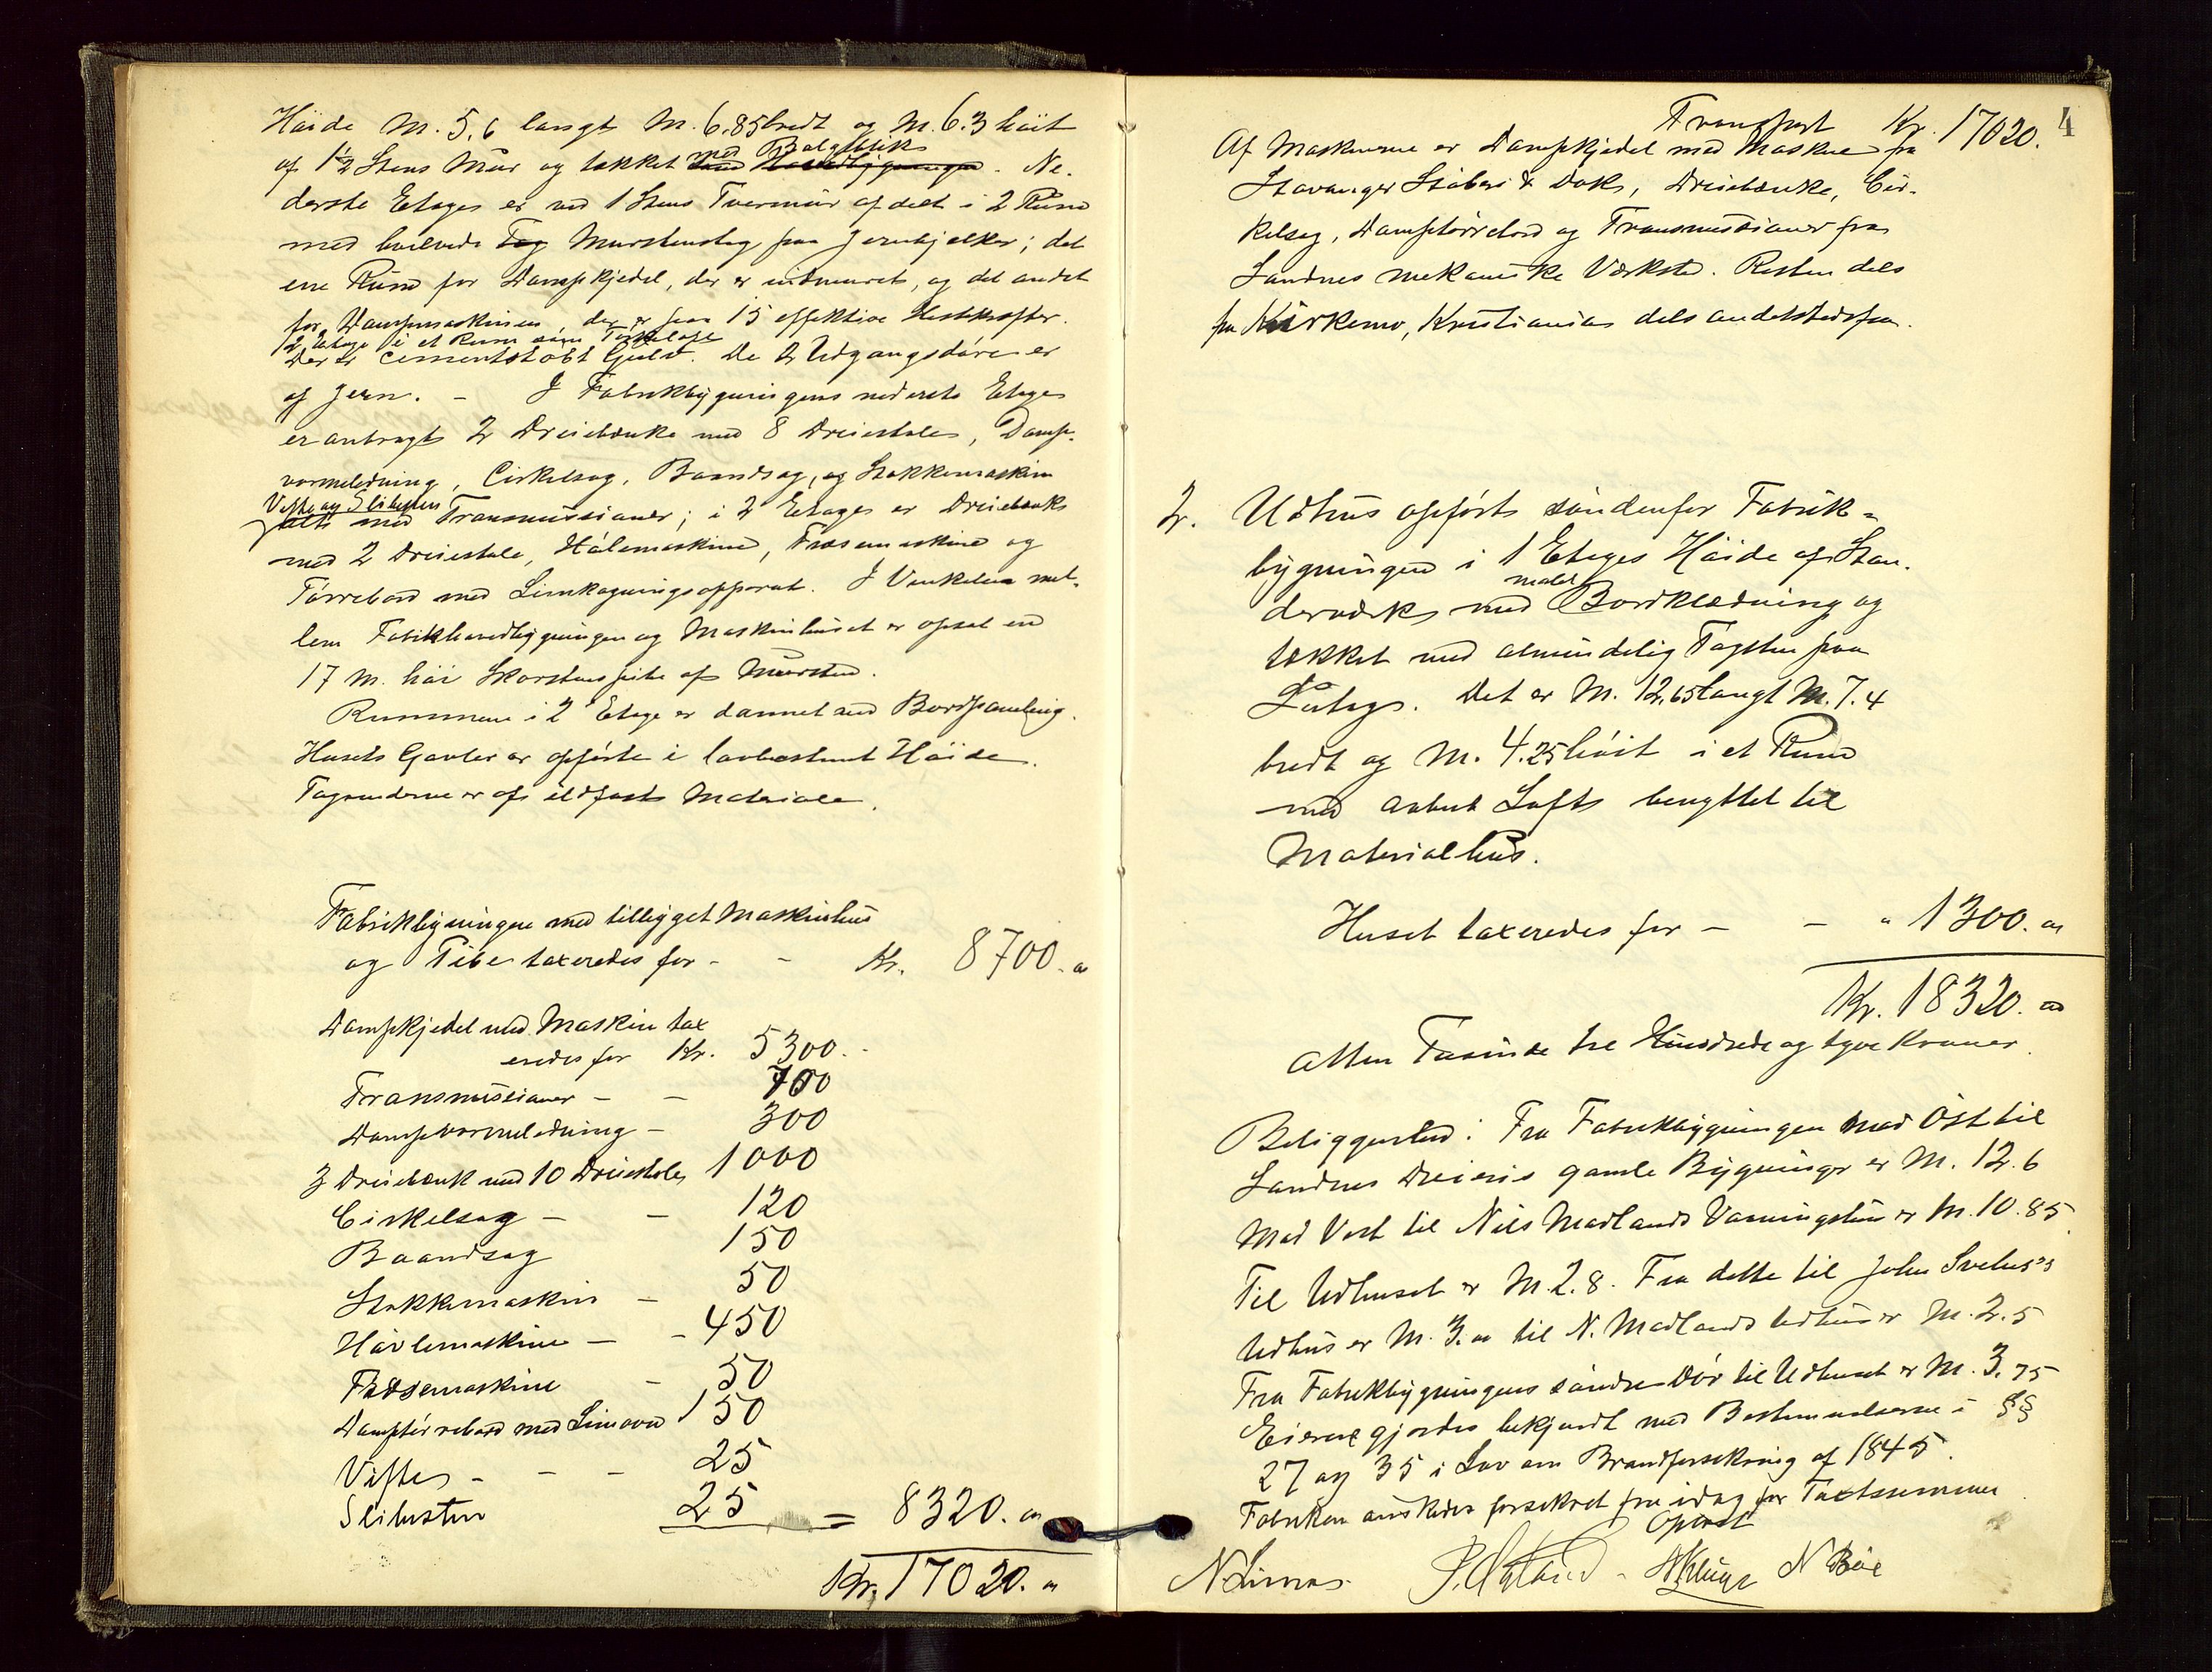 Höide M. 5,6 langt M. 6,85 bredt og M. 6.3 höit
af 1½ Stens Mur og tækket med Bølgeblik
med Hovedbygningen. Ne-
derste Etage er ved 1 Stens Tvermur afdelt i 2 Rum
med hvelvede Tag Murstenstag paa Jernbjelker; det
ene Rum for Dampkjedel, der er indmuret, og det andet
for Dampmaskinen, der er paa 15 effektive Hestkræfter.
2 Etage i et Rum som Törkeloft
Der er cementstöbt Gulv. De 2 Udgangsdöre er
af Jern. – I Fabrikbygningens nederste Etage
er anbragt 2 Dreiebænke med 8 Dreiestole, Damp-
varmeledning, Cirkelsag, Baandsag, og Stokkemaskin
Vifte og Slibesten
alt med Transmissioner; i 2 Etage er Dreiebænk
med 2 Dreiestole, Hölemaskine, Fræsemaskine og
Törrebord med Limkogningsapparat. I Vinkelen mel-
lem Fabrikhovedbygningen og Maskinhuset er opsat en
17 M. höi Skorstenspibe af Mursten.
Rummene i 2 Etage er dannet med Bordpaneling.
Husets Gavler er opförte i lovbestemt Höide.
Tagrenderne er af ildfast Materiale.
Fabrikbygningen med tilbygget Maskinhus
og Pibe taxeredes for - - Kr. 8700.00
Dampkjedel med Maskin tax
eredes for Kr. 5300.-
Transmissioner – – 700
Dampvarmeledning – 300
3 Dreiebænk med 10 Dreiestole 1000
Cirkelsag – – 120
Baandsag 150
Stokkemaskin – 50
Hövlemaskine – - 450
Fræsemaskine – 50
Damptörrebord med Limovn 150
Vifte - - - 25
Slibesten 25 = 8320.00
Kr. 17020.00
4
Transport Kr. 17020.
Af Maskinerne er Dampkjedel med Maskine fra
Stavanger Stöberi & Dok, Dreiebænke, Cir-
kelsag, Damptörrebord og Transmissioner fra
Sandnes mekaniske Værksted. Resten dels
fra Kirkemo, Kristiania dels andetstedsfra.
2. Udhus opført söndenfor Fabrik-
bygningen i 1 Etages Höide af Stan-
derværk med malet Bordklædning og
tækket med almindelig Tagsten paa
Lutag. Det er M. 12,65 langt M. 7.4
bredt og M. 4.25 höit i et Rum
med aabent Loft benyttet til
Materialhus.
Huset taxeredes for – – " 1300.00
Kr. 18320.00
Atten Tusinde tre Hundrede og tyve Kroner.
Beliggenhed: Fra Fabrikbygningen mod Öst til
Sandnes Dreieris gamle Bygninger er M. 12.6
Mod Vest til Nils Madlands Vaaningshus er M. 10.85
Til Udhuset er M. 2.8. Fra dette til John Svehus's
Udhus er M. 3.00 til N. Madlands Udhus er M. 2.5
Fra Fabrikbygningens söndre Dör til Udhuset er M. 3.75
Eierne gjordes bekjendt med Bestemmelserne i §§
27 og 35 i Lov om Brandforsikring af 1845.
Fabriken önskedes forsikret fra idag for Taxtsummen
Oplæst
N Bøe